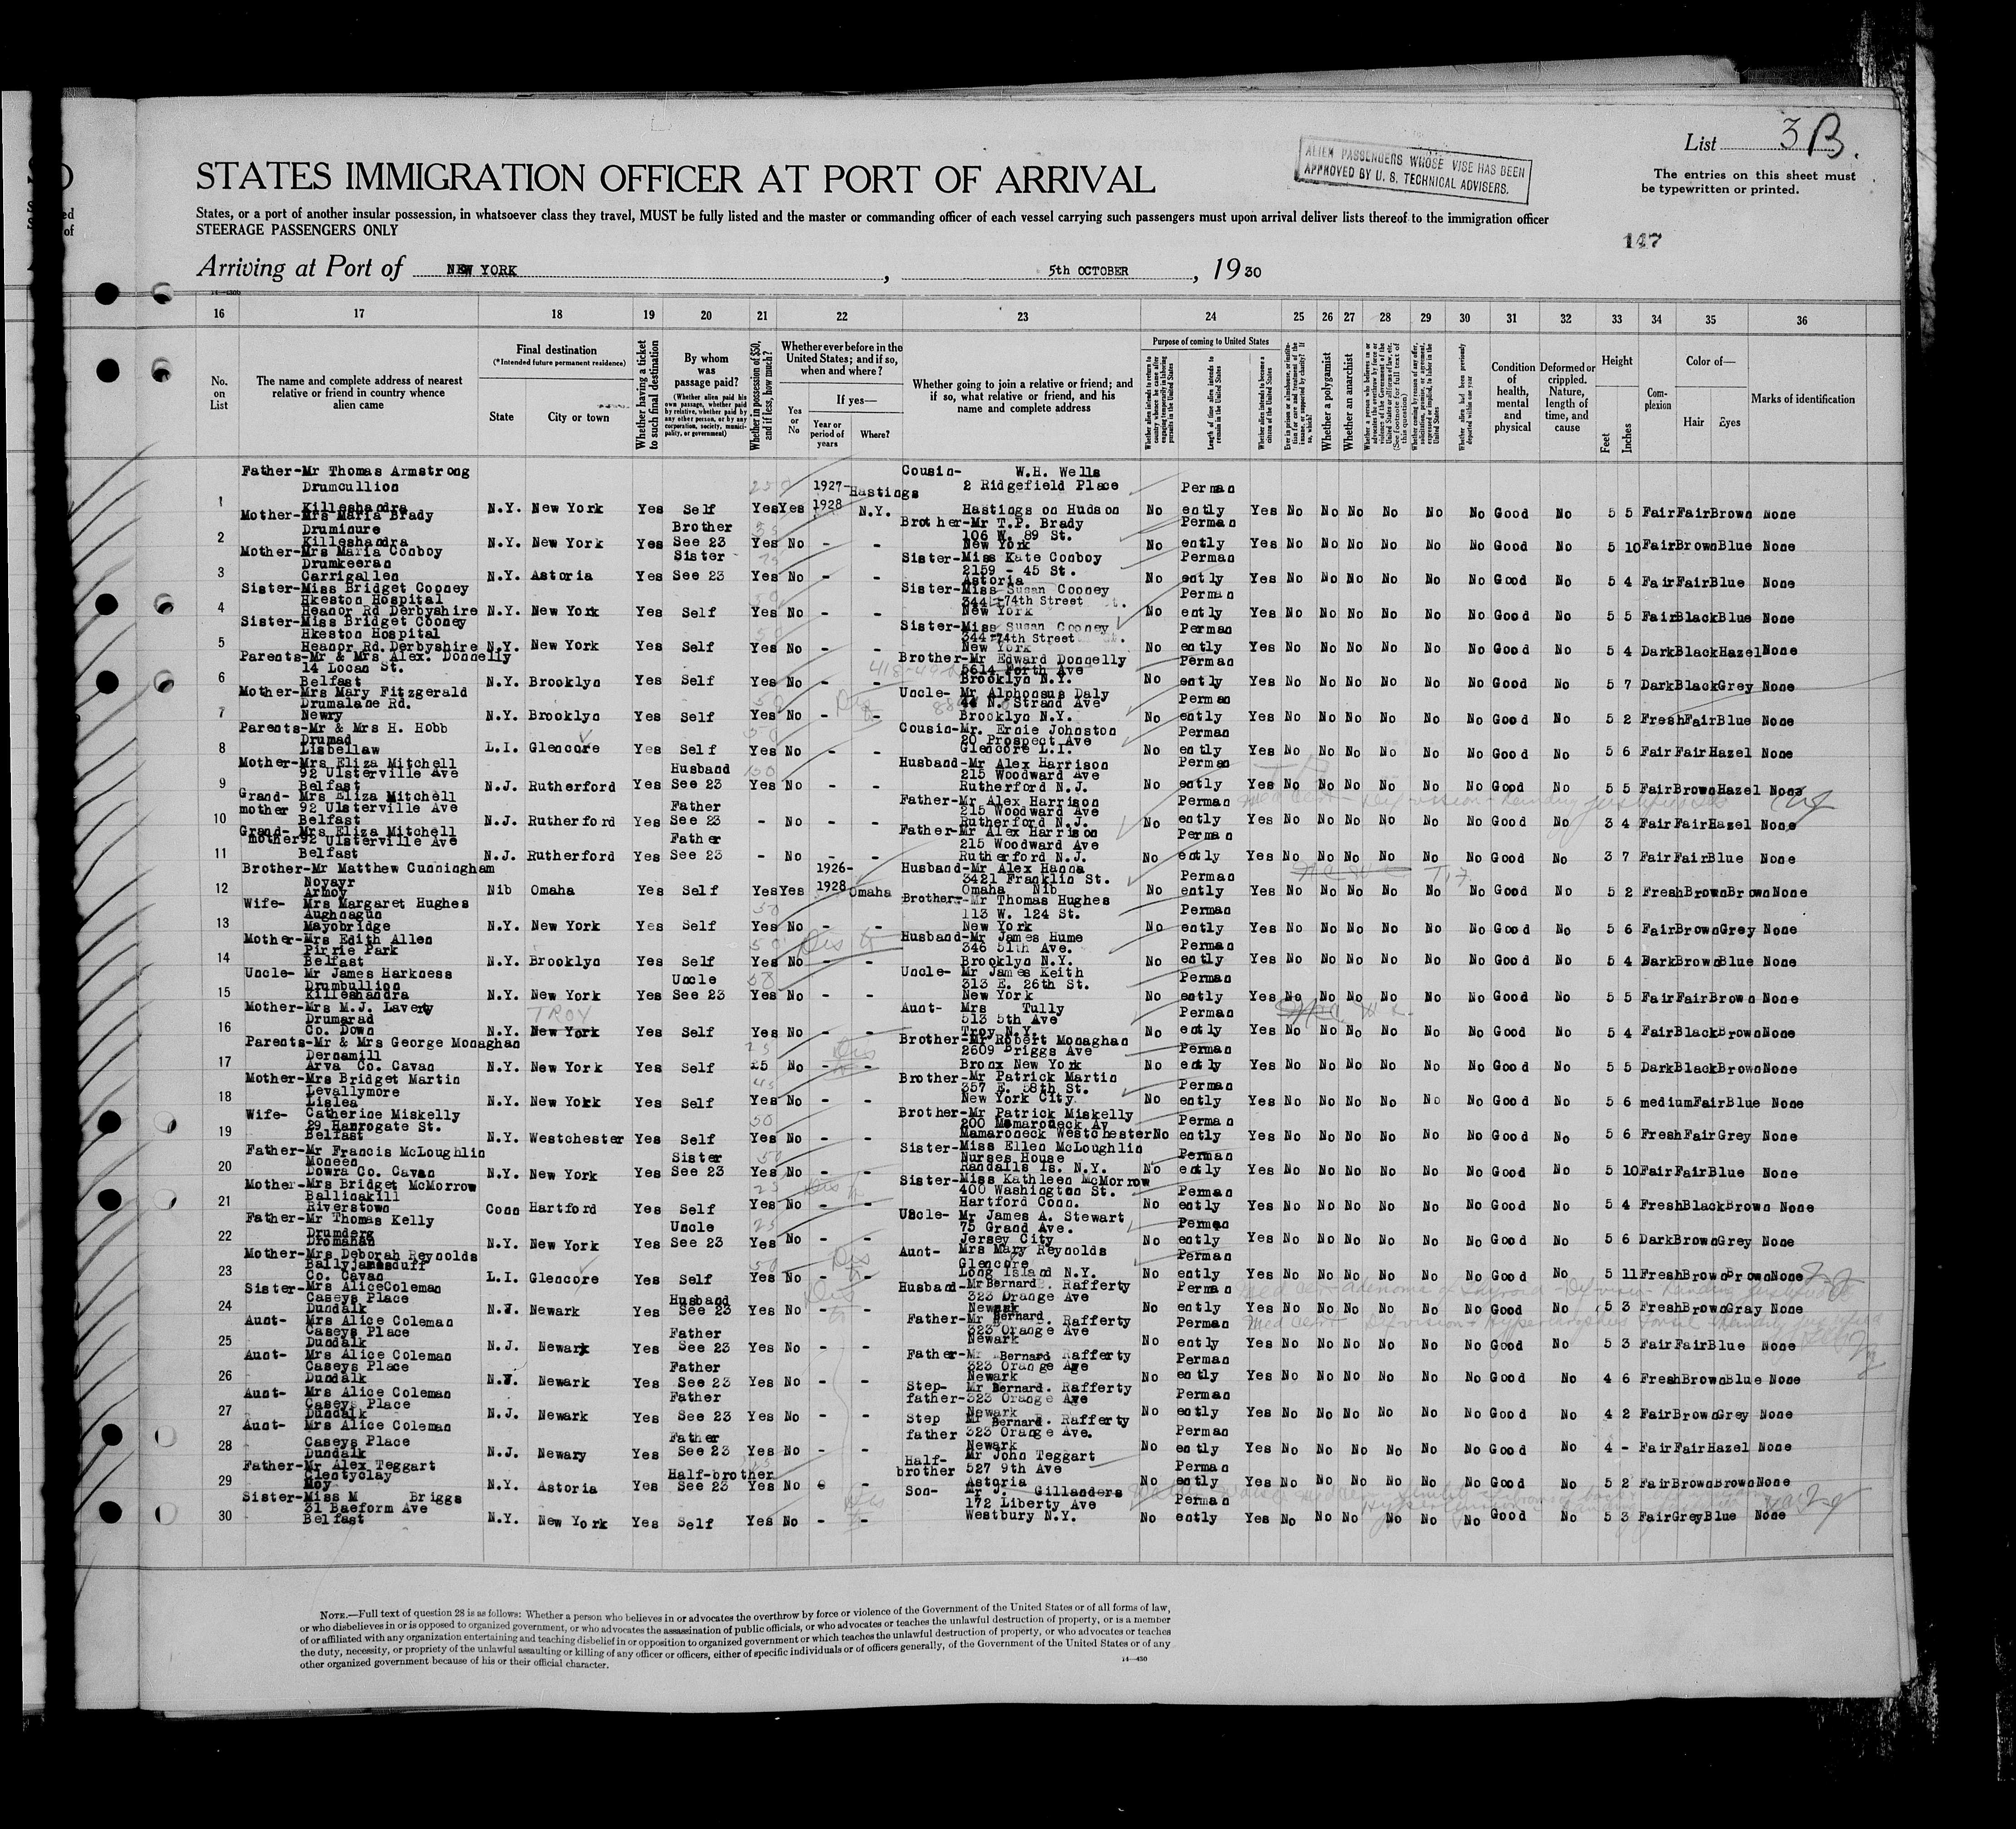 List 3 B.
The entries on this sheet must
be typewritten or printed.
ALIEN PASSENGERS WHOSE VISE HAS BEEN
APPROVED BY U. S. TECHNICAL ADVISERS.
STATES IMMIGRATION OFFICER AT PORT OF ARRIVAL
States, or a port of another insular possession, in whatsoever class they travel, MUST be fully listed and the master or commanding officer of each vessel carrying such passengers must upon arrival deliver lists thereof to the immigration officer
STEERAGE PASSENGERS ONLY
147
Arriving at Port of NEW YORK, 5th OCTOBER, 1930
16 17 18 19 20 21 22 23 24 25 26 27 28 29 30 31 32 33 34 35 36
No. on List
The name and complete address of nearest
relative or friend in country whence
alien came
Final destination
(*Intended future permanent residence)
State
City or town
Whether having a ticket to such final destination
By whom was passage paid?
(Whether alien paid his own passage, whether paid by relative, whether paid by any other person, or by any corporation, society, municipality, or government)
Whether in possession of $50, and if less, how much?
Whether ever before in the United States; and if so, when and where?
Yes or No
If yes—
Year or period of years
Where?
Whether going to join a relative or friend; and
if so, what relative or friend, and his
name and complete address
Purpose of coming to United States
Length of time alien intends to remain in the United States
Whether alien intends to become a citizen of the United States
Whether a polygamist
Whether an anarchist
Condition of health, mental and physical
Deformed or crippled. Nature, length of time, and cause
Height
Feet
Inches
Complexion
Color of—
Hair
Eyes
Marks of identification
Father-Mr Thomas Armstrong Cousin- W.H. Wells
Drumcullion 1927- Hastings 2 Ridgefield Place Perman
1 Killeshandra N.Y. New York Yes Self Yes Yes 1928 N.Y. Hastings on Hudson No ently Yes No No No No No No Good No 5 5 Fair Fair Brown None
Mother-Mrs Maria Brady Brother-Mr T.P. Brady Perman
Druminure Brother 106 W. 89 St.
2 Killeshandra N.Y. New York Yes See 23 Yes No - - New York No ently Yes No No No No No No Good No 5 10 Fair Brown Blue None
Mother-Mrs Maria Conboy Sister Sister-Miss Kate Conboy Perman
Drumkeeran 2159 - 45 St.
3 Carrigallen N.Y. Astoria Yes See 23 Yes No - - Astoria No ently Yes No No No No No No Good No 5 4 Fair Fair Blue None
Sister-Miss Bridget Cooney Sister-Miss Susan Cooney Perman
Hkeston Hospital 344 74th Street
4 Heanor Rd Derbyshire N.Y. New York Yes Self Yes No - - New York No ently Yes No No No No No No Good No 5 5 Fair Black Blue None
Sister-Miss Bridget Cooney Sister-Miss Susan Cooney Perman
Hkeston Hospital 344 74th Street
5 Heanor Rd. Derbyshire N.Y. New York Yes Self Yes No - - New York No ently Yes No No No No No No Good No 5 4 Dark Black Hazel None
Parents-Mr & Mrs Alex. Donnelly Brother-Mr Edward Donnelly Perman
14 Locan St. 5614 Forth Ave
6 Belfast N.Y. Brooklyn Yes Self Yes No - - Brooklyn N.Y. No ently Yes No No No No No No Good No 5 7 Dark Black Grey None
Mother-Mrs Mary Fitzgerald Uncle- Mr Alphonsus Daly Perman
Drumalane Rd. 44 N. Strand Ave
7 Newry N.Y. Brooklyn Yes Self Yes No - - Brooklyn N.Y. No ently Yes No No No No No No Good No 5 2 Fresh Fair Blue None
Parents-Mr & Mrs H. Hobb Cousin-Mr. Ernie Johnston Perman
Drumad 20 Prospect Ave
8 Lisbellaw L.I. Glencore Yes Self Yes No - - Glencore L.I. No ently Yes No No No No No No Good No 5 6 Fair Fair Hazel None
Mother-Mrs Eliza Mitchell Husband Husband-Mr Alex Harrison Perman
92 Ulsterville Ave 215 Woodward Ave
9 Belfast N.J. Rutherford Yes See 23 Yes No - - Rutherford N.J. No ently Yes No No No No No No Good No 5 5 Fair Brown Hazel None
Grand- Mrs Eliza Mitchell Father-Mr Alex Harrison Perman
mother 92 Ulsterville Ave Father 215 Woodward Ave
10 Belfast N.J. Rutherford Yes See 23 - No - - Rutherford N.J. No ently Yes No No No No No No Good No 3 4 Fair Fair Hazel None
Grand- Mrs Eliza Mitchell Father-Mr Alex Harrison
mother 92 Ulsterville Ave Father 215 Woodward Ave Perman
11 Belfast N.J. Rutherford Yes See 23 - No - - Rutherford N.J. No ently Yes No No No No No No Good No 3 7 Fair Fair Blue None
Brother-Mr Matthew Cunningham 1926- Husband-Mr Alex Hanna
Noyayr 3421 Franklin St. Perman
12 Armoy Nib Omaha Yes Self Yes Yes 1928 Omaha Omaha Nib No ently Yes No No No No No No Good No 5 2 Fresh Brown Brown None
Wife- Mrs Margaret Hughes Brother-Mr Thomas Hughes
Aughnagun 113 W. 124 St. Perman
13 Mayobridge N.Y. New York Yes Self Yes No - - New York No ently Yes No No No No No No Good No 5 6 Fair Brown Grey None
Mother-Mrs Edith Allen Husband-Mr James Hume Perman
Pirrie Park 346 51th Ave.
14 Belfast N.Y. Brooklyn Yes Self Yes No - - Brooklyn N.Y. No ently Yes No No No No No No Good No 5 4 Dark Brown Blue None
Uncle- Mr James Harkness Uncle Uncle- Mr James Keith Perman
Drumbullion 313 E. 26th St.
15 Killeshandra N.Y. New York Yes See 23 Yes No - - New York No ently Yes No No No No No No Good No 5 5 Fair Fair Brown None
Mother-Mrs M.J. Laverty TROY Aunt- Mrs Tully Perman
Drumarad 513 5th Ave
16 Co. Down N.Y. New York Yes Self Yes No - - Troy N.Y. No ently Yes No No No No No No Good No 5 4 Fair Black Brown None
Parents-Mr & Mrs George Monaghan Brother-Mr Robert Monaghan
Dernamill 2609 Briggs Ave Perman
17 Arva Co. Cavan N.Y. New York Yes Self 25 No - - Bronx New York No ently Yes No No No No No No Good No 5 5 Dark Black Brown None
Mother-Mrs Bridget Martin Brother-Mr Patrick Martin Perman
Levallymore 357 E. 58th St.
18 Lislea N.Y. New York Yes Self Yes No - - New York City No ently Yes No No No No No No Good No 5 6 medium Fair Blue None
Wife- Catherine Miskelly Brother-Mr Patrick Miskelly Perman
29 Harrogate St. 200 Mamaroneck Av
19 Belfast N.Y. Westchester Yes Self Yes No - - Mamaroneck Westchester No ently Yes No No No No No No Good No 5 6 Fresh Fair Grey None
Father-Mr Francis McLoughlin Sister Sister-Miss Ellen McLoughlin Perman
Moneen Nurses House
20 Dowra Co. Cavan N.Y. New York Yes See 23 Yes No - - Randalls Is. N.Y. No ently Yes No No No No No No Good No 5 10 Fair Fair Blue None
Mother-Mrs Bridget McMorrow Sister-Miss Kathleen McMorrow
Ballinakill 400 Washington St. Perman
21 Riverstown Conn Hartford Yes Self Yes No - - Hartford Conn. No ently Yes No No No No No No Good No 5 4 Fresh Black Brown None
Father-Mr Thomas Kelly Uncle Uncle- Mr James A. Stewart
Drumderg 75 Grand Ave. Perman
22 Dromahan N.Y. New York Yes See 23 Yes No - - Jersey City No ently Yes No No No No No No Good No 5 6 Dark Brown Grey None
Mother-Mrs Deborah Reynolds Aunt- Mrs Mary Reynolds Perman
Ballyjamesduff Glencore
23 Co. Cavan L.I. Glencore Yes Self Yes No - - Long Island N.Y. No ently Yes No No No No No No Good No 5 11 Fresh Brown Brown None
Sister-Mrs Alice Coleman Husband Husband-Mr Bernard Rafferty Perman
Caseys Place 323 Orange Ave
24 Dundalk N.J. Newark Yes See 23 Yes No - - Newark No ently Yes No No No No No No Good No 5 3 Fresh Brown Gray None
Aunt- Mrs Alice Coleman Father Father-Mr Bernard Rafferty Perman
Caseys Place 323 Orange Ave
25 Dundalk N.J. Newark Yes See 23 Yes No - - Newark No ently Yes No No No No No No Good No 5 3 Fair Fair Blue None
Aunt- Mrs Alice Coleman Father Father-Mr Bernard Rafferty Perman
Caseys Place 323 Orange Ave
26 Dundalk N.J. Newark Yes See 23 Yes No - - Newark No ently Yes No No No No No No Good No 4 6 Fresh Brown Blue None
Aunt- Mrs Alice Coleman Father Step- Mr Bernard. Rafferty Perman
Caseys Place father-323 Orange Ave
27 Dundalk N.J. Newark Yes See 23 Yes No - - Newark No ently Yes No No No No No No Good No 4 2 Fair Brown Grey None
Aunt- Mrs Alice Coleman Father Step Mr Bernard. Rafferty Perman
Caseys Place father 323 Orange Ave.
28 Dundalk N.J. Newary Yes See 23 Yes No - - Newark No ently Yes No No No No No No Good No 4 - Fair Fair Hazel None
Father-Mr Alex Teggart Half-brother Half- Mr John Teggart Perman
Clentyclay brother 527 9th Ave
29 Moy N.Y. Astoria Yes See 23 Yes No - Astoria No ently Yes No No No No No No Good No 5 2 Fair Brown Brown None
Sister-Miss M Briggs Son- Mr J. Gillanders Perman
31 Baeform Ave 172 Liberty Ave
30 Belfast N.Y. New York Yes Self Yes No - - Westbury N.Y. No ently Yes No No No No No No Good No 5 3 Fair Grey Blue None
NOTE.—Full text of question 28 is as follows: Whether a person who believes in or advocates the overthrow by force or violence of the Government of the United States or of all forms of law,
or who disbelieves in or is opposed to organized government, or who advocates the assassination of public officials, or who advocates or teaches the unlawful destruction of property, or is a member
of or affiliated with any organization entertaining and teaching disbelief in or opposition to organized government or which teaches the unlawful destruction of property, or who advocates or teaches
the duty, necessity, or propriety of the unlawful assaulting or killing of any officer or officers, either of specific individuals or of officers generally, of the Government of the United States or of any
other organized government because of his or their official character.
14—430